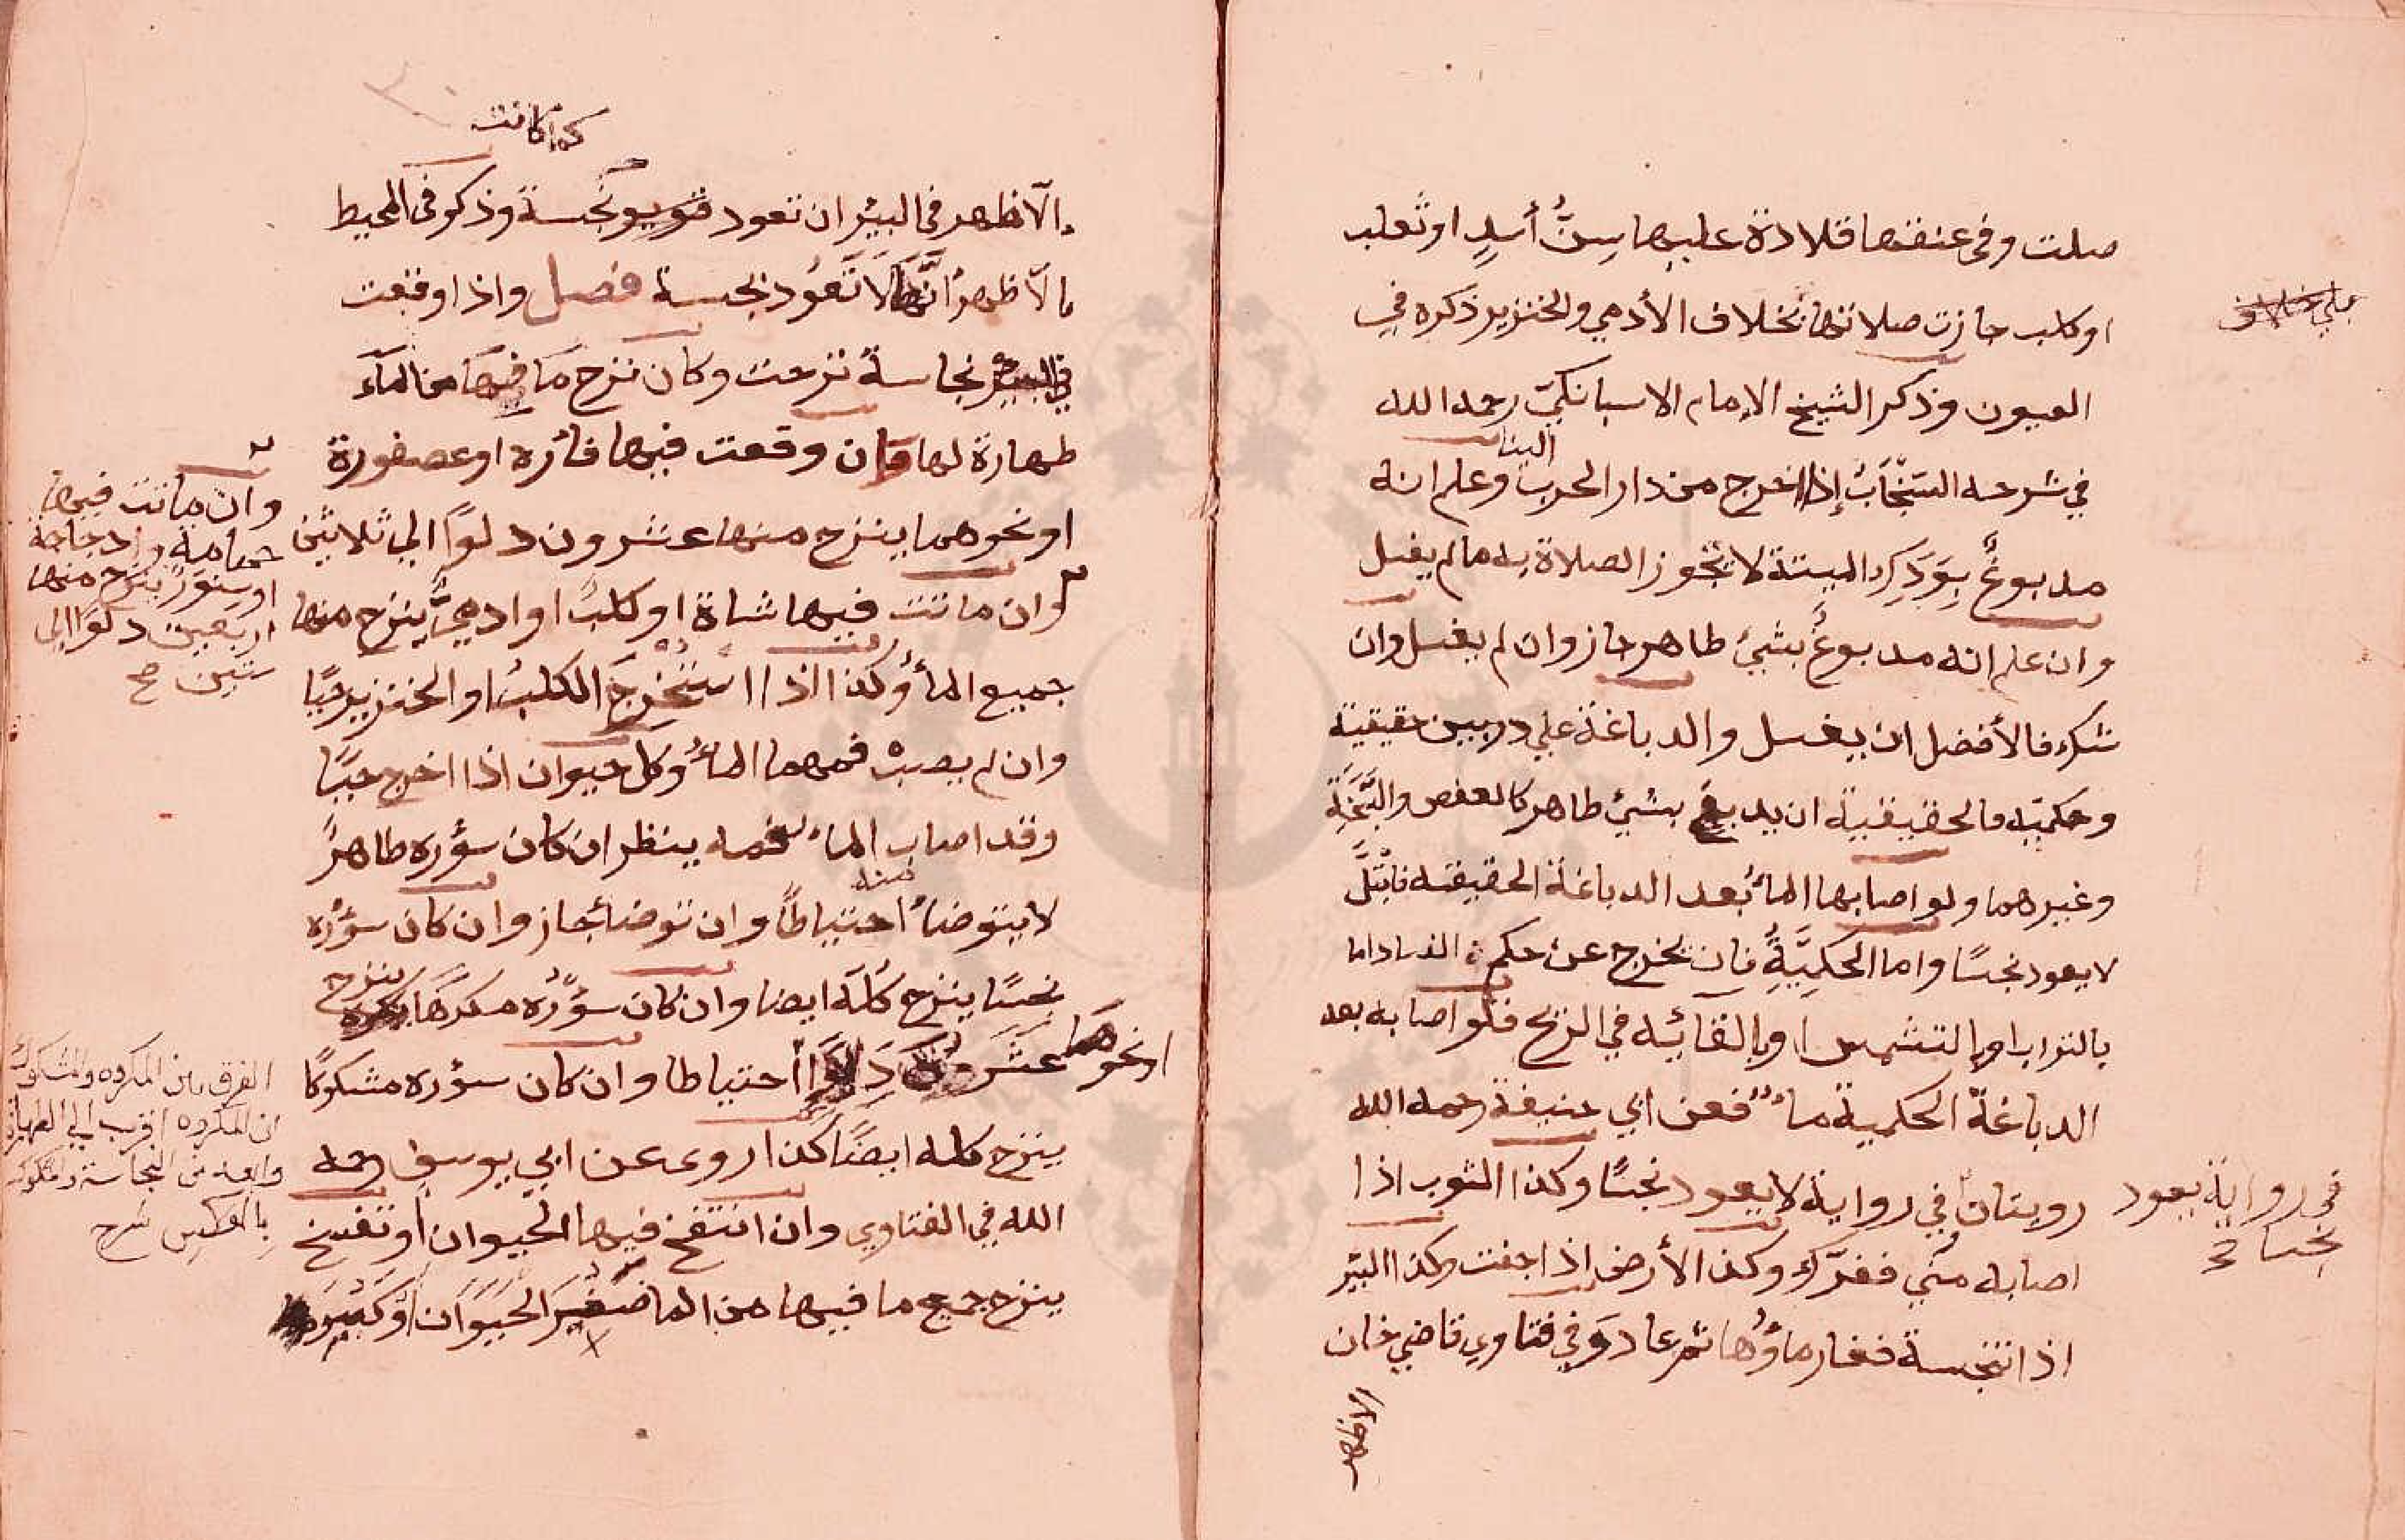 صلت وفي عنقها قلادة عليها سِنُّ أسدٍ او ثعلب
او كلب جازت صلاتها بخلاف الأدمي والخنزير ذكره في
العيون وذكر الشيخ الإمام الاسبانكيّ رحمه الله
في شرحه السنجاب إذا اخرج من دار الحرب وعلم انه
الينا
مدبوغٌ بِوَدَكِ الميتة لا تجوز الصلاة به مالم يغسل
وان علم انه مدبوغٌ بشيئ طاهر جاز وان لم يغسل وان
شك فالأفضل ان يغسل والدباغة علي دربين حقيقية
وحكميه فالحقيقية ان يدبغ بشيئ طاهر كالعفص والسَّبَخَةِ
وغيرهما ولو اصابها الماءُ بعد الدباغة الحقيقه فابْتلَّ
لا يعود نجسًا واما الحكمِيَّةُ فان تخرج عن حكم الفساد اما
بالتراب او بالتشميس او بالقائه في الريح فلو اصابه بعد
الدباغة الحكمية ماءٌ فعن ابي حنيفة رحمه الله
رويتان في رواية لا يعود نجسًا وكذا الثوب اذا
في رواية يعود
نجسا
اصابه مني ففرّك وكذا الأرض اذا جفت وكذا البئر
اذا تنجسة فغار ماؤُها ثم عاد وفي فتاوي قاضي خان
علي خلاف
الأظهر في البئر ان تعود نجسة وذكر في المحيط
كما كانت
الأظهر انّها لا تَعُود نجسة فصل واذا وقعت
في البئر نجاسة نزحت وكان نزح مَا فيهَا من الماء
طهارة لها فان وقعت فيها فأره او عصفورة
او نحوهما ينزح منها عشرون دلوًا الي ثلاثين
وان ماتت فيها شاة او كلبٌ او ادميٌّ ينزح منها
جميع الماءُ وكذا اذا استُخْرِجَ الكلبُ او الخنزير حيًا
وان لم يصبْ فمهما الماءُ وكل حيوان اذا اخرج حيًا
وقد اصاب الماء فمه ينظر ان كان سؤره طاهرًا
لا يتوضأ احتياطًا وان توضأ جاز وان كان سؤره
منه
نجسًا ينزح كُله ايضا وان كان سؤرُه مكروهَا ينزح
او نحوها عشَرَ دَلوًا احتياطا وان كان سؤره مشكوكًا
ينزح كله ايضًا كذا روي عن ابي يوسف رحمه
الله في الفتاوي وان انتفخ فيها الحيوان او تفسخ
ينزح جميع ما فيها من الما صَغُرَ الحَيَوَان اَوْ كَبُرَ
وان ماتت فيها
حمامة او دجاجة
او سنورٌ ينزح منها
اربعين دلوًا الي
ستين صح
الفرق بين المكروه والمشكوك
ان المكروه اقرب الي الطهارة
وابعد من النجاسة والمشكوك
بالعكس شرح